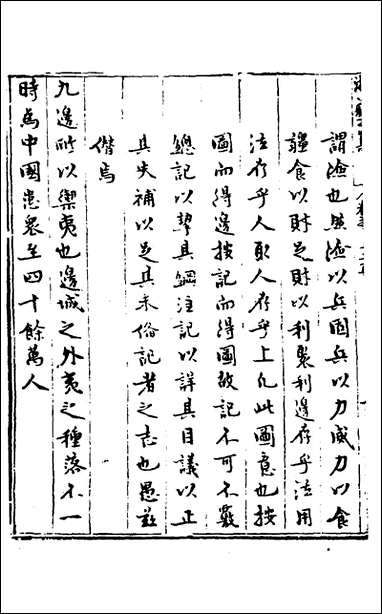 謂險也然險以兵固兵以力威力以食
疆食以財足財以利聚利邊存乎法用
法存乎人取人存乎上凡此圖意也按
圖而得邊按記而得圖故記不可不嚴
總記以挈其綱注記以詳其目議以正
其失補以足其未俻記者之志也愚茲
僭焉
九邊所以禦夷也邊城之外夷之種落不一
時為中國患衆至四十餘萬人